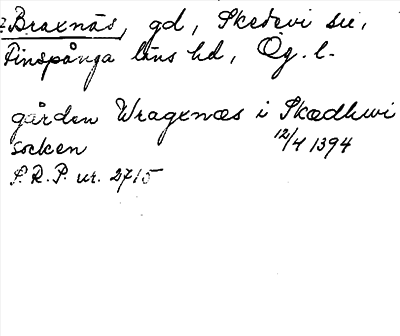 Braxnäs, gd, Skedevi sn,
Finspånga läns hd, Ög. l.
gården Wragxnæs i Skædhwi
socken 12/4 1394
S.R.P. nr. 2715